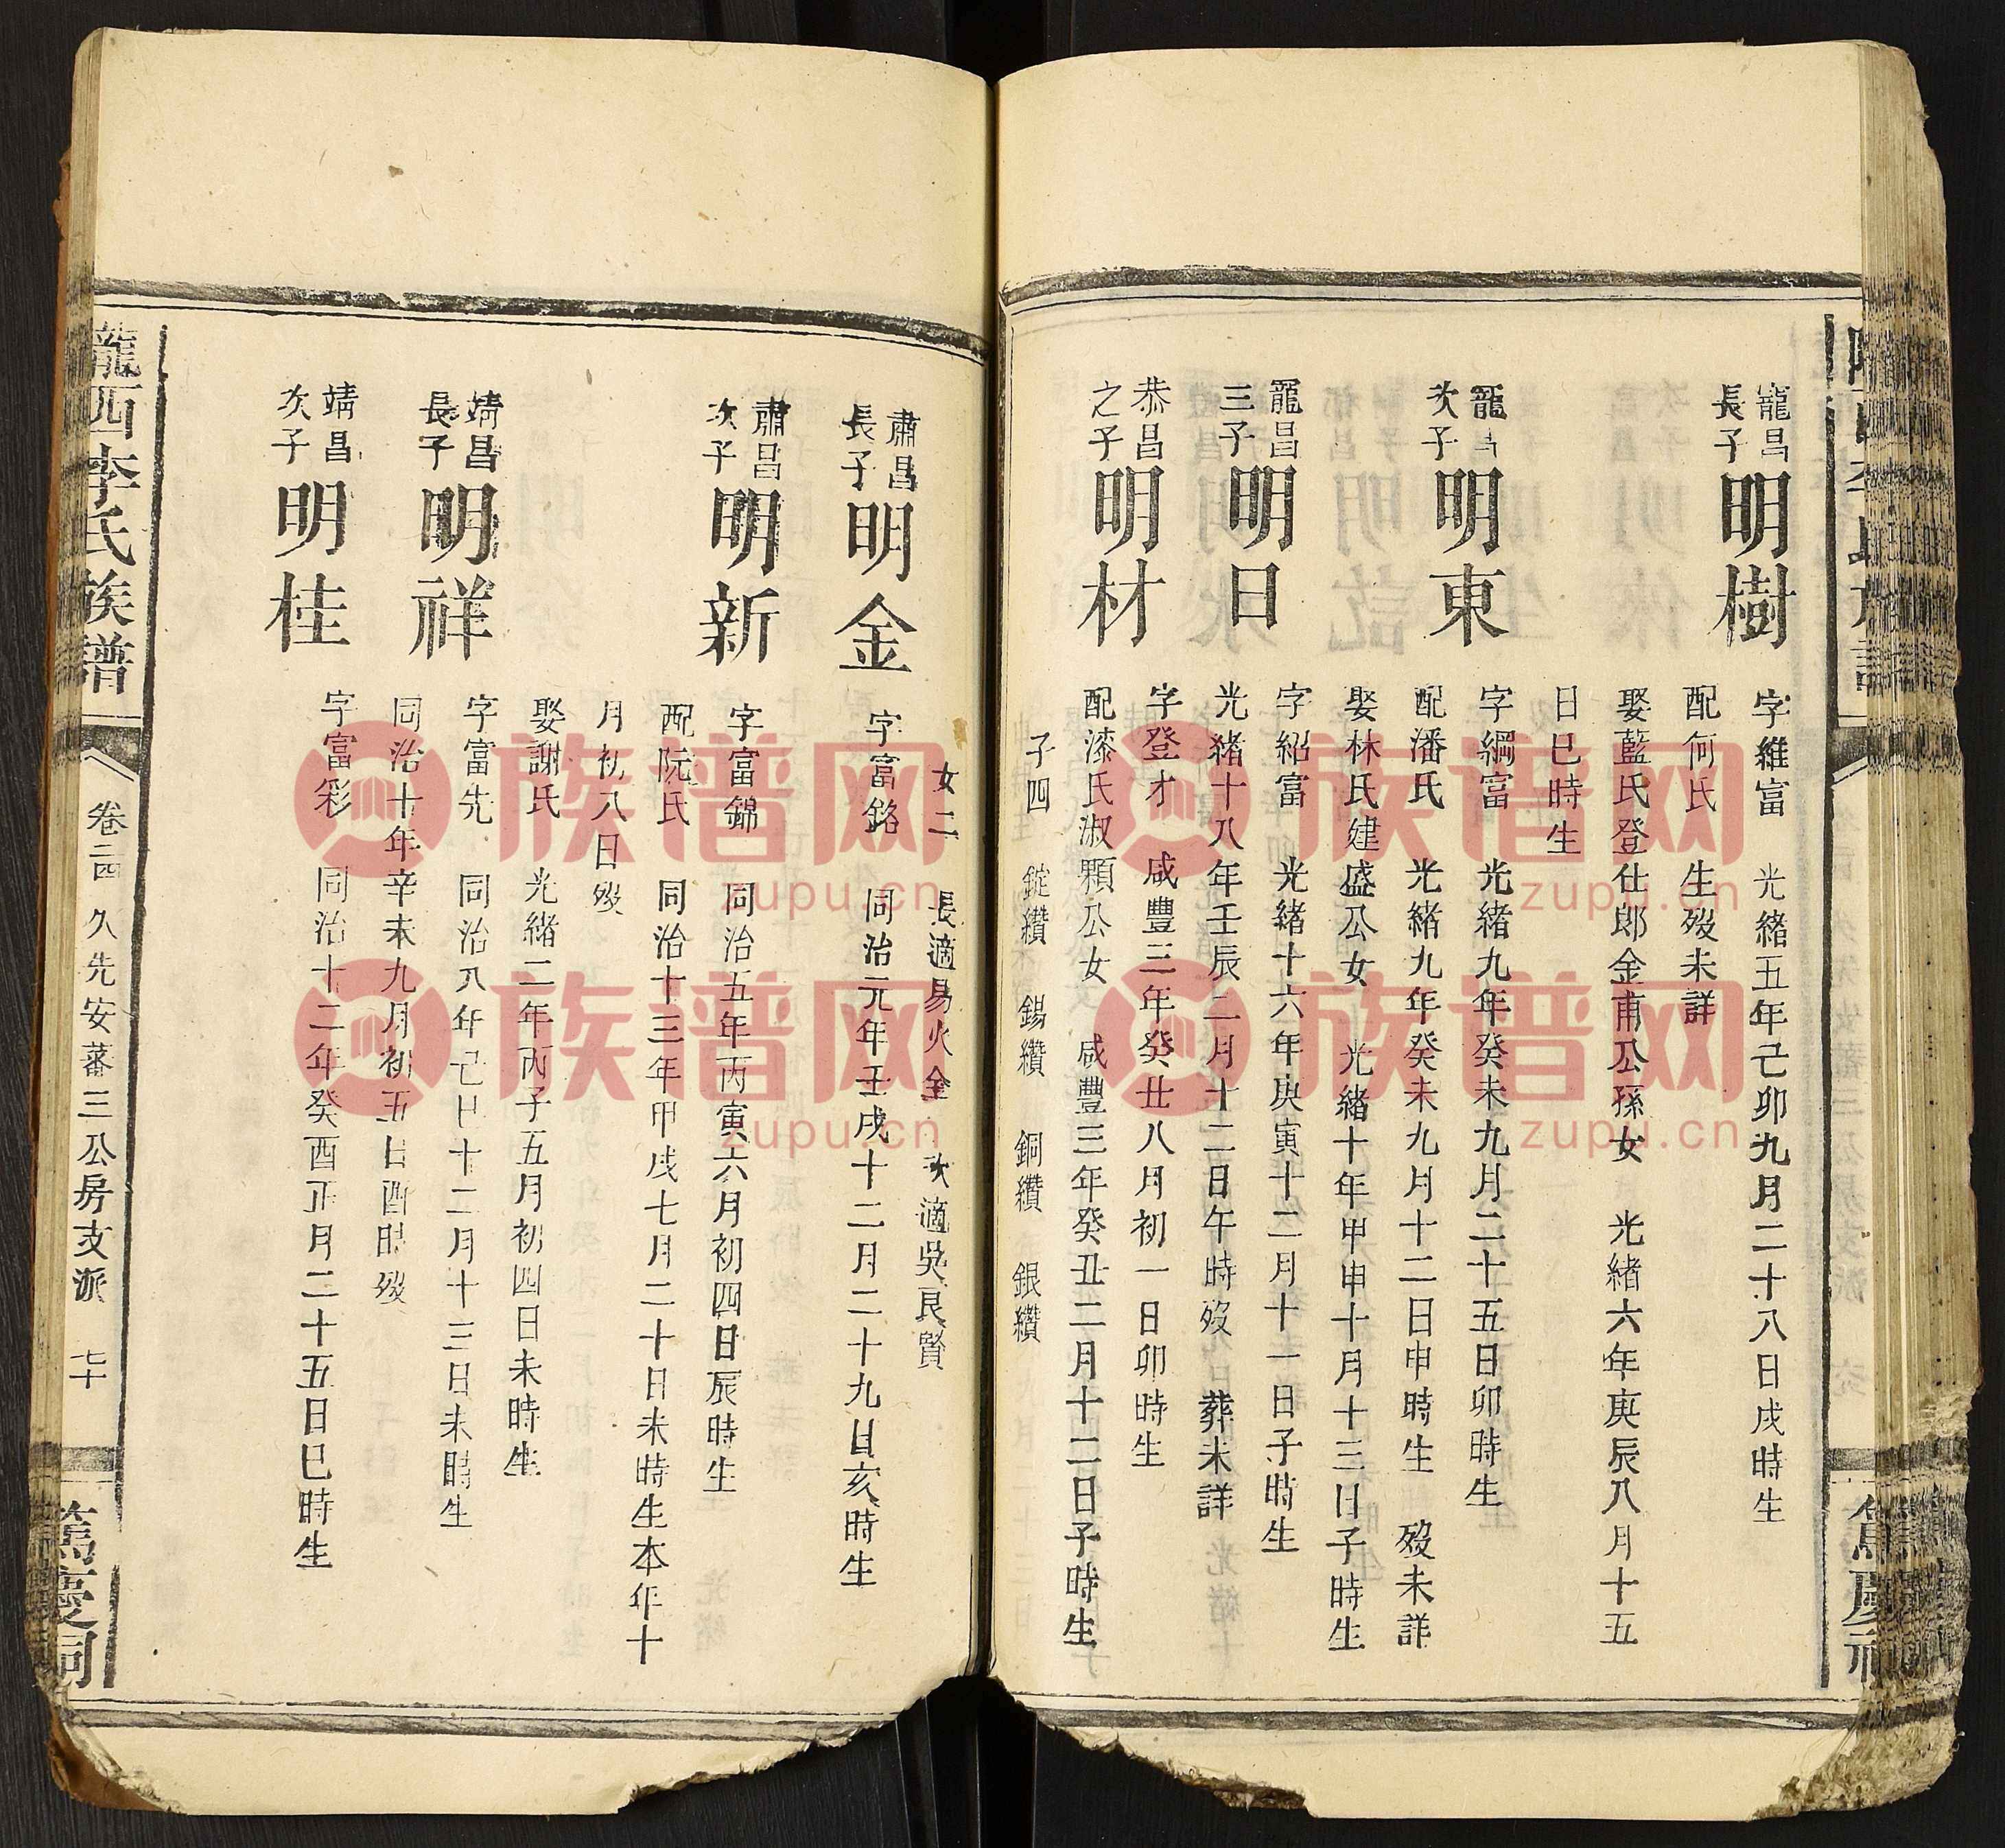 寵昌
長子
明樹
字維富　光緒五年己卯九月二十八日戌時生
配何氏　生歿未詳
娶藍氏登仕郎金甫公孫女　光緒六年庚辰八月十五
日巳時生
寵昌
次子
明東
字綱富　光緒九年癸未九月二十五日卯時生
配潘氏　光緒九年癸未九月十二日申時生　歿未詳
娶林氏建盛公女　光緒十年甲申十月十三日子時生
寵昌
三子
明日
字紹富　光緒十六年庚寅十二月十一日子時生
光緒十八年壬辰二月十二日午時歿　葬未詳
恭昌
之子
明材
字登才　咸豐三年癸丑八月初一日卯時生
配漆氏淑顆公女　咸豐三年癸丑二月十二日子時生
子四　錠纘　錫纘　銅纘　銀纘
女二　長適易火金　次適吳良賢
肅昌
長子
明金
字富銘　同治元年壬戌十二月二十九日亥時生
肅昌
次子
明新
字富錦　同治五年丙寅六月初四日辰時生
配阮氏　同治十三年甲戌七月二十日未時生本年十
月初八日歿
娶謝氏　光緒二年丙子五月初四日未時生
靖昌
長子
明祥
字富先　同治八年己巳十二月十三日未時生
同治十年辛未九月初五日酉時歿
靖昌
次子
明桂
字富彩　同治十二年癸酉正月二十五日巳時生
隴西李氏族譜
卷二四　久先安蕃三公房支派　七十
篤慶祠
族谱网
zupu.cn
族谱网
zupu.cn
族谱网
zupu.cn
族谱网
zupu.cn